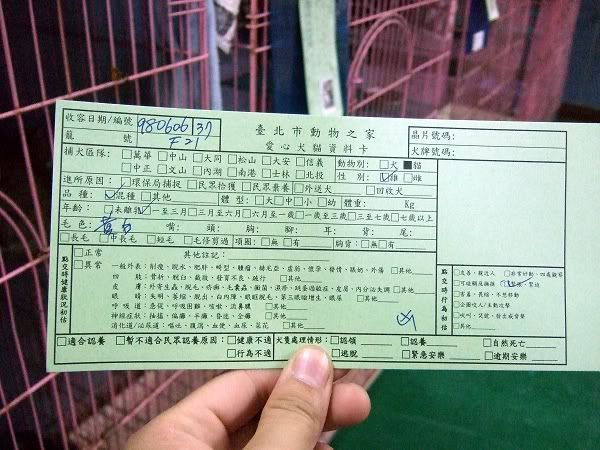 收容日期/編號 980606137
籠 號 F21
臺北市動物之家
愛心犬貓資料卡
晶片號碼:
犬牌號碼:
捕犬區隊: □萬華 □中山 □大同 □松山 □大安 □信義 動物別: □犬 ■貓
□中正 □文山 □內湖 □南港 □士林 □北投 性 別: ☑雄 □雌
進所原因: □環保局捕捉 □民眾拾獲 □民眾棄養 □外送犬 □回收犬
品 種: ☑混種 □其他 體 型: □大 □中 □小 □幼 體重: Kg
年齡: □未離乳 ☑一至三月 □三月至六月 □六月至一歲 □一歲至三歲 □三至七歲 □七歲以上
毛 色: 黃白 嘴: 頭: 胸: 腳: 耳: 背: 尾:
□長毛 □中長毛 □短毛 □毛修剪過 項圈: □無 □有 胸背: □無 □有
點交時健康狀況初估
□正常 其他註記:
□異常 一般外表: □削瘦、脫水、肥胖、畸型、腫瘤、赫尼亞、虛弱、懷孕、發情、跛幼、外傷 □其他
四 肢: 骨折、脫臼、截肢、發育不良、跛行 □其他
皮 膚: 外寄生蟲、脫毛、疥癬、毛囊蟲、黴菌、濕疹、跳蚤過敏症、皮屑、內分泌失調 □其他
眼 睛: 失明、萎縮、脫出、白內障、眼瞼脫毛、第三眼瞼增生、眼屎 □其他
呼 吸 道: 急促、呼吸困難、咳嗽、流鼻膿 □其他
神經症狀: 抽搐、偏癱、半癱、昏迷、全癱 □其他
消化道/泌尿道: 嘔吐、腹瀉、血便、血尿、菜花 □其他
點交時行為初估
□友善、親近人 □非常好動、四處觀察
□可碰觸反撫摸 ☑緊張、緊迫
□害羞、畏縮、不想移動
□企圖咬人&主動攻擊
□吠叫、哭號、發出威脅聲
□其他
□適合認養 □暫不適合民眾認養原因: □健康不適 犬隻處理情形: □認領 □認養 □自然死亡
□行為不適 □逃脫 □緊急安樂 □逾期安樂